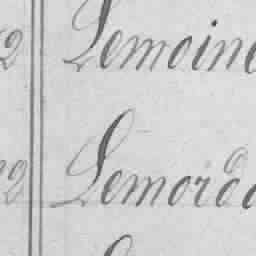 2 Lemoine
2 Lemorda